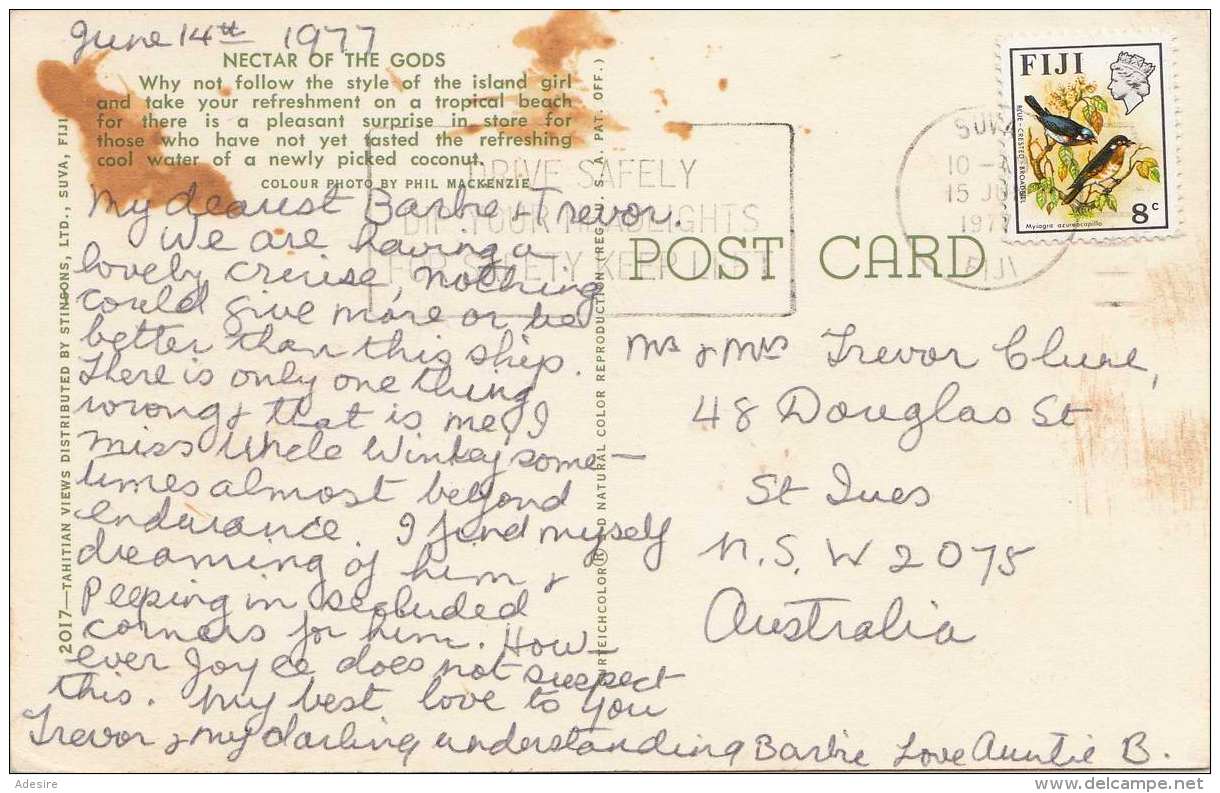 June 14th 1977
NECTAR OF THE GODS
Why not follow the style of the island girl
and take your refreshment on a tropical beach
for there is a pleasant surprise in store for
those who have not yet tasted the refreshing
cool water of a newly picked coconut.
COLOUR PHOTO BY PHIL MACKENZIE
My dearest Barbie & Trevor.
We are having a
lovely cruise, nothing
could give more or be
better than this ship.
There is only one thing
wrong & that is me, I
miss Uncle Winkey some-
times almost beyond
endurance. I find myself
dreaming of him &
peeping in secluded
corners for him. How-
ever Joyce does not suspect
this. My best love to you
Trevor & my darling understanding Barbie Love Auntie B.
2017—TAHITIAN VIEWS DISTRIBUTED BY STINSONS, LTD., SUVA, FIJI
NATURAL COLOR REPRODUCTION (REG. U.S.A. PAT. OFF.)
DRIVE SAFELY
DIP YOUR HEADLIGHTS
FOR SAFETY KEEP LEFT
POST CARD
SUVA
10-
15 JU
1977
FIJI
FIJI
BLUE-CRESTED BROADBILL
Myiagra azureocapilla
8c
Mr & Mrs Trevor Clune,
48 Douglas St
St Ives
N.S.W 2075
Australia
Adesire
www.delcampe.net